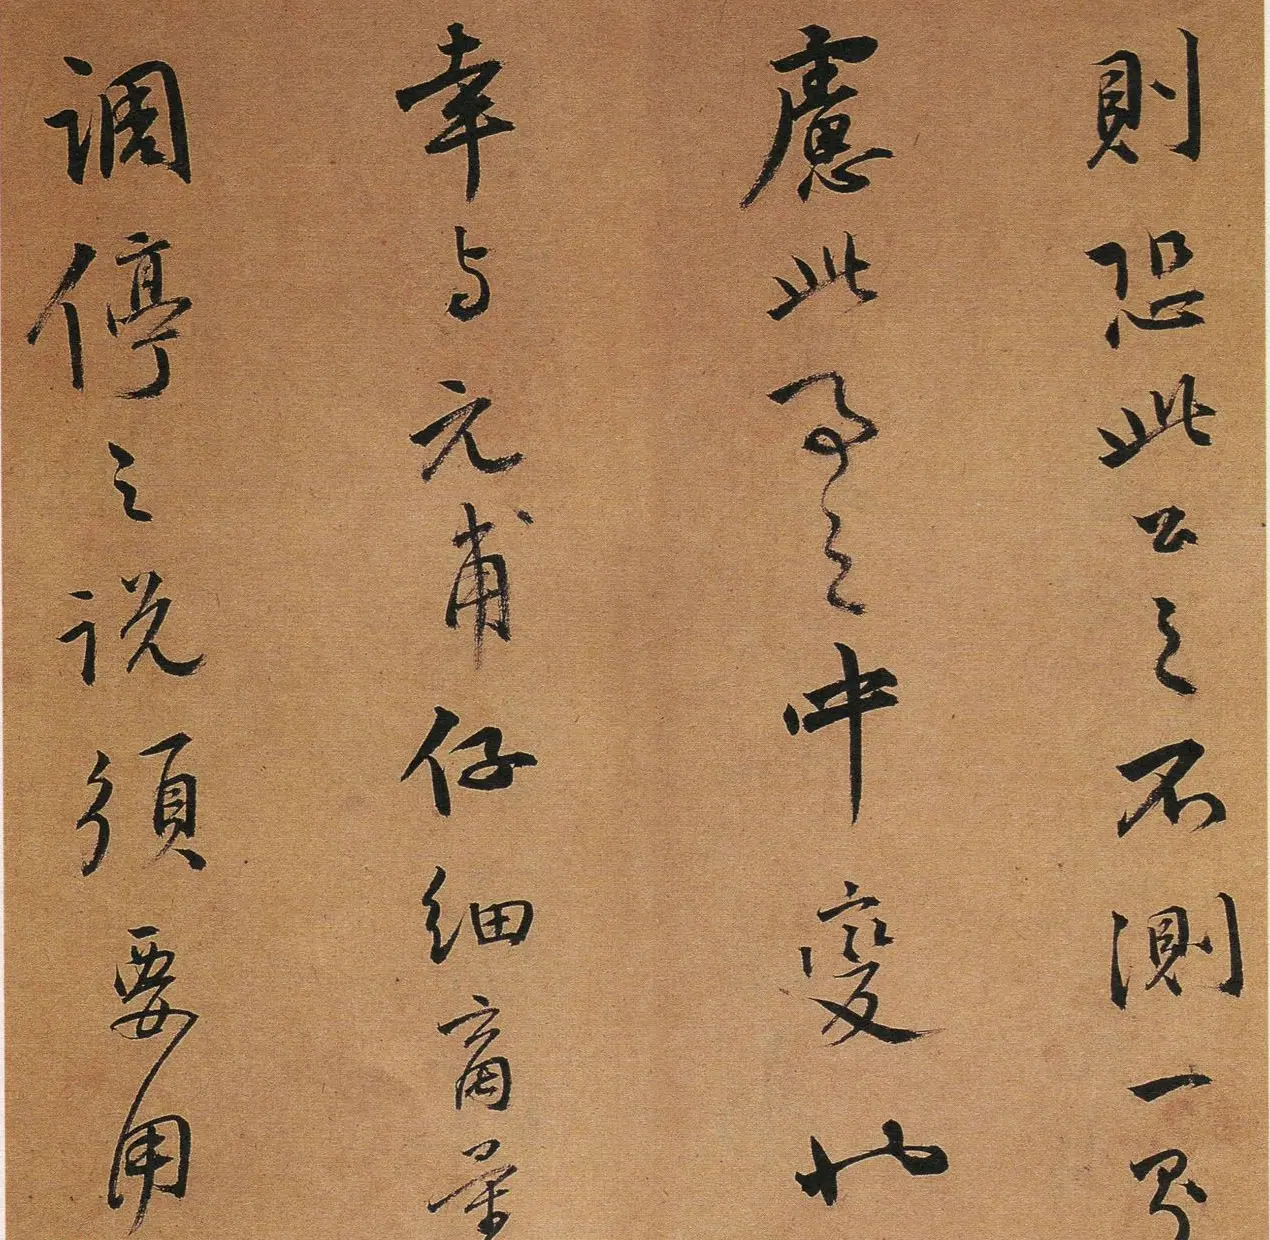 則恐此公之不測一界
慮此事之中變也
幸与元甫仔細商量
調停之説須要用